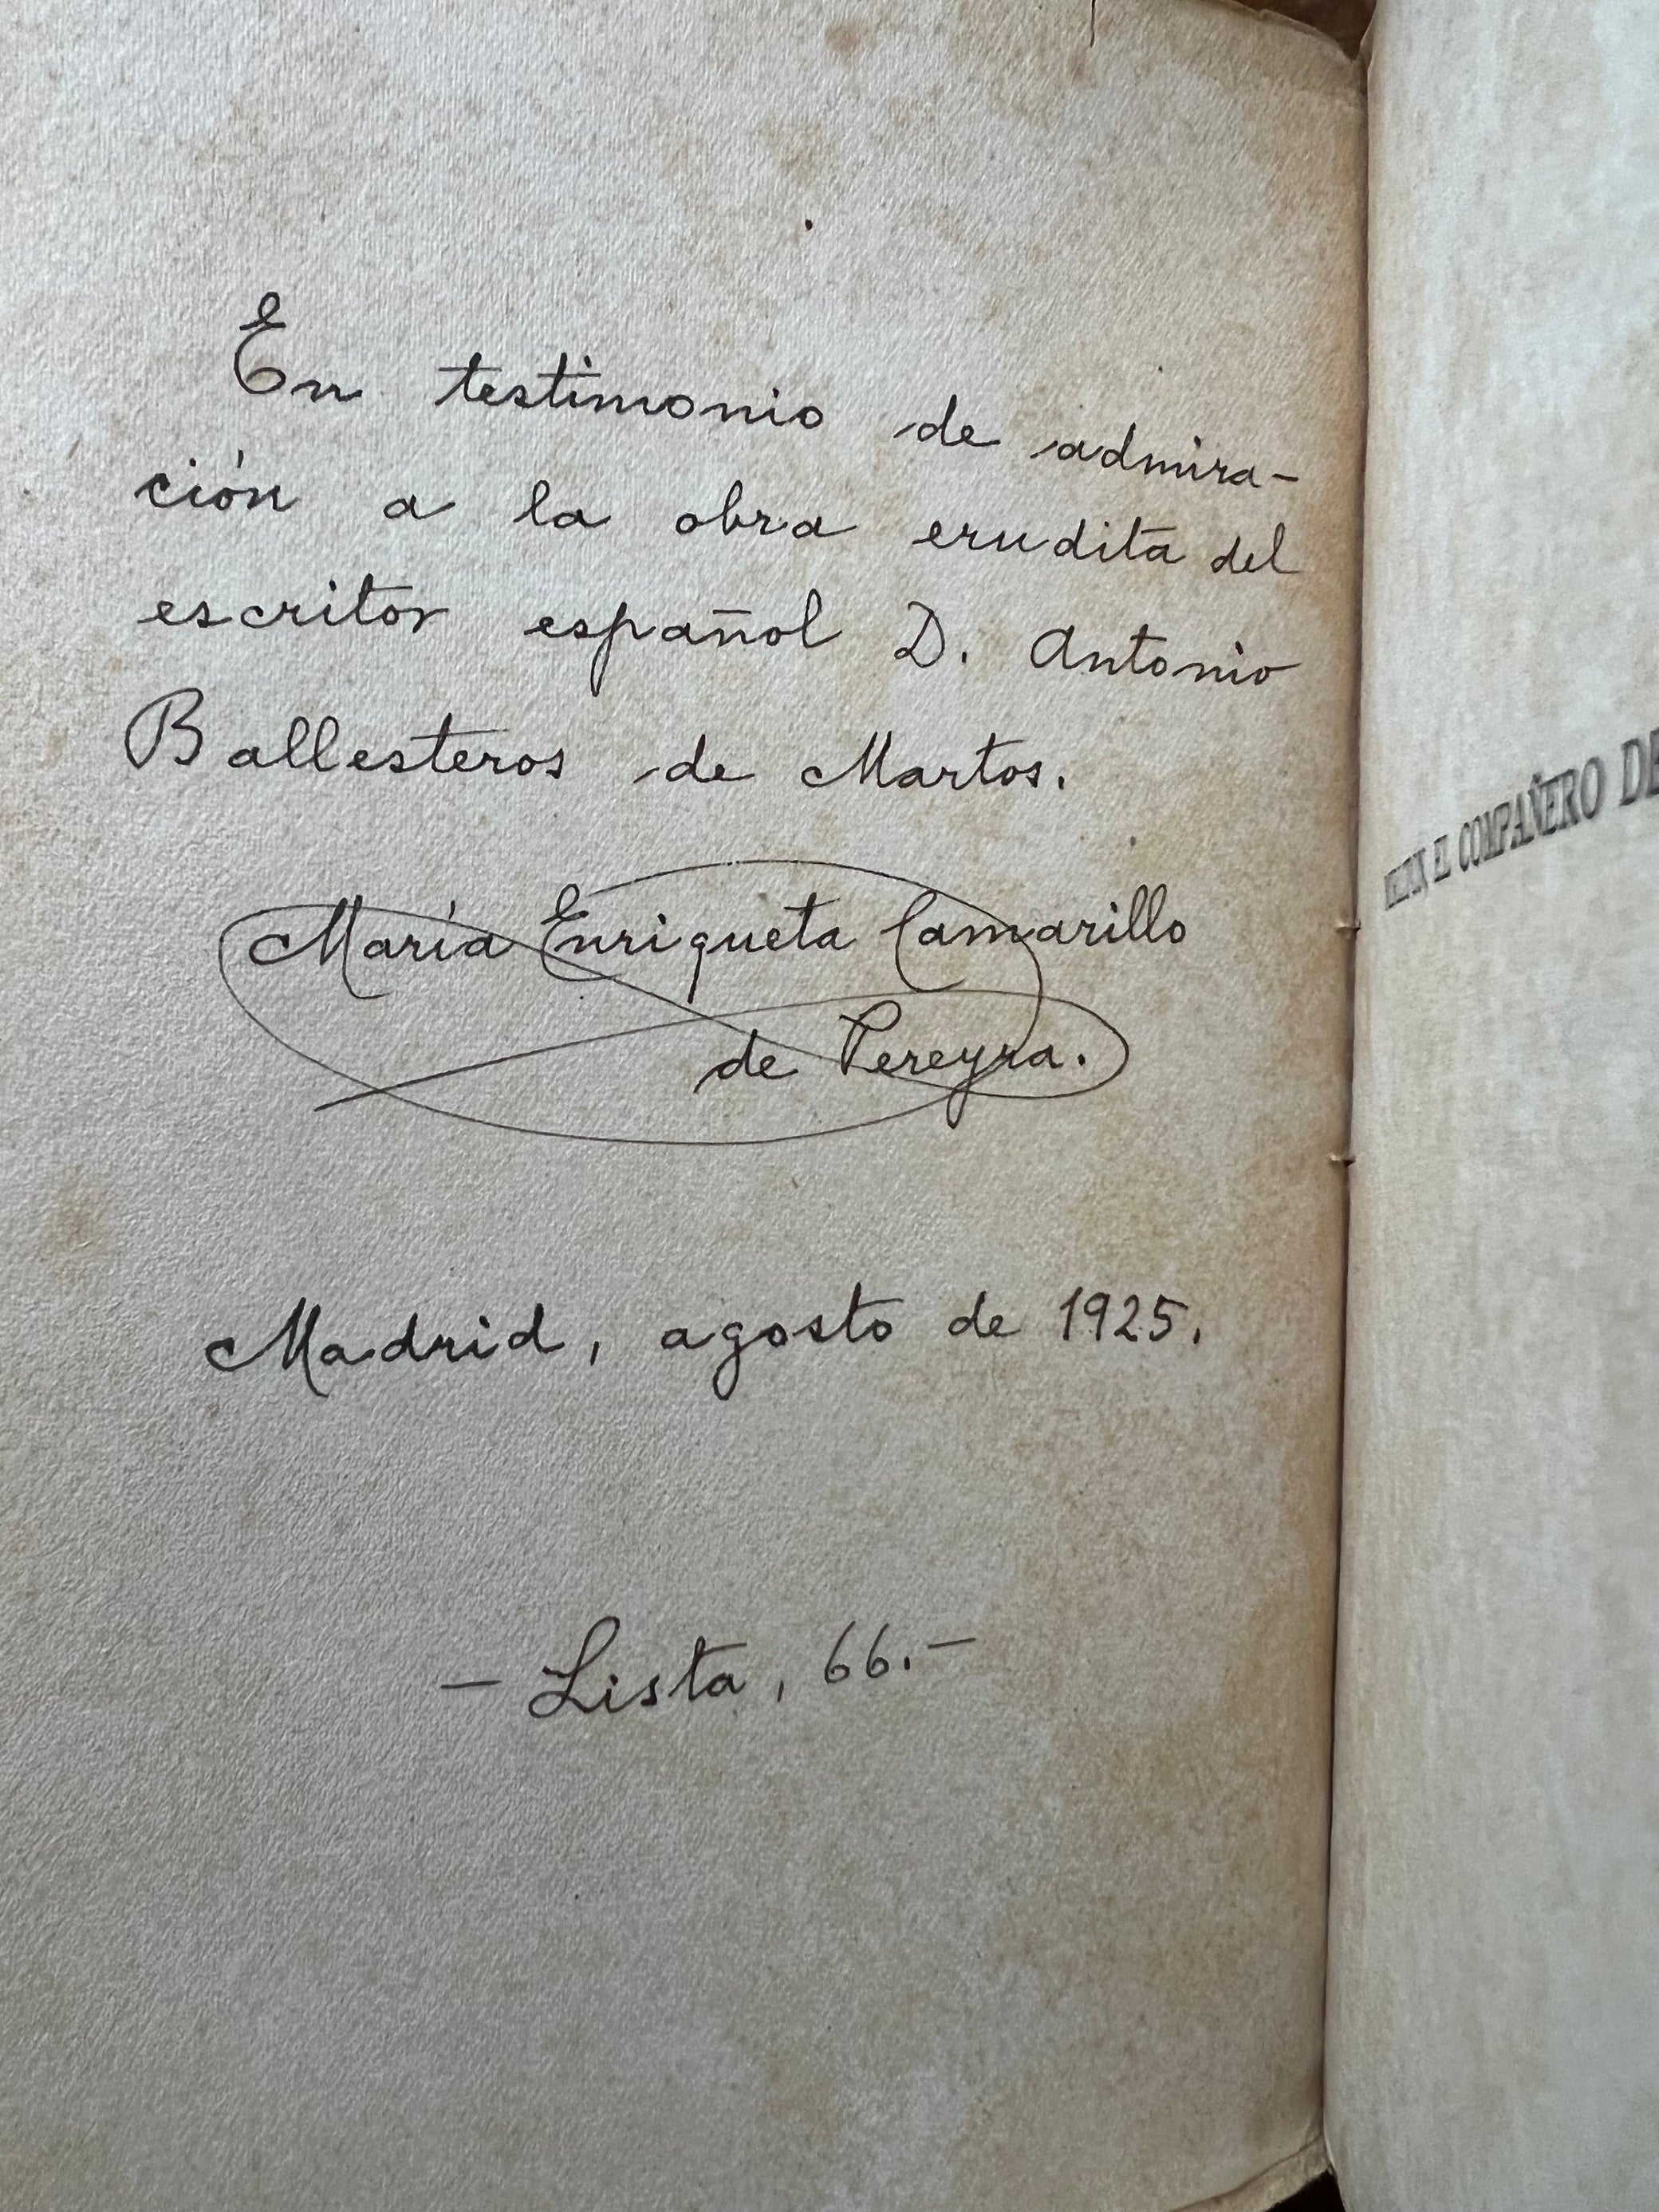 En testimonio de admira-
ción a la obra erudita del
escritor español D. Antonio
Ballesteros de Martos.
María Enriqueta Camarillo
de Pereyra.
Madrid, agosto de 1925.
- Lista, 66. -
EL COMPAÑERO DE